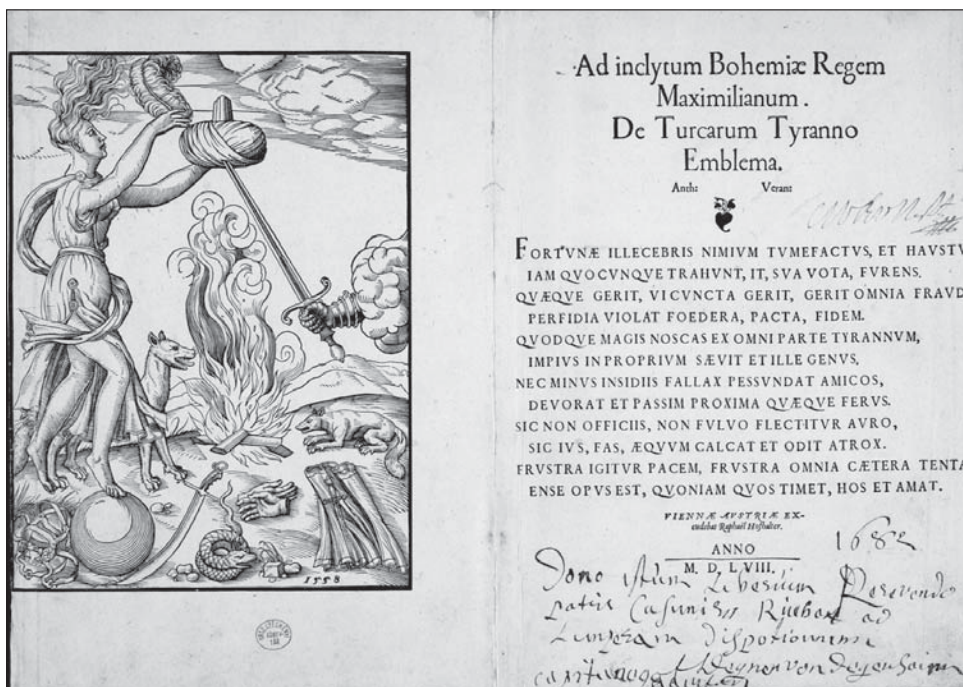 1558
Ad inclytum Bohemiæ Regem
Maximilianum.
De Turcarum Tyranno
Emblema.
Anth: Veran:
FORTVNÆ ILLECEBRIS NIMIVM TVMEFACTVS, ET HAVSTV
IAM QVOCVNQVE TRAHVNT, IT, SVA VOTA, FVRENS.
QVÆQVE GERIT, VI CVNCTA GERIT, GERIT OMNIA FRAVD
PERFIDIA VIOLAT FOEDERA, PACTA, FIDEM.
QVODQVE MAGIS NOSCAS EX OMNI PARTE TYRANNVM,
IMPIVS IN PROPRIVM SÆVIT ET ILLE GENVS.
NEC MINVS INSIDIIS FALLAX PESSVNDAT AMICOS,
DEVORAT ET PASSIM PROXIMA QVÆQVE FERVS.
SIC NON OFFICIIS, NON FVLVO FLECTITVR AVRO,
SIC IVS, FAS, ÆQVVM CALCAT ET ODIT ATROX.
FRVSTRA IGITVR PACEM, FRVSTRA OMNIA CÆTERA TENTA
ENSE OPVS EST, QVONIAM QVOS TIMET, HOS ET AMAT.
VIENNÆ AVSTRIÆ EX-
cudebat Raphaël Hofhalter.
ANNO
M. D. LVIII.
1682
Dono istum
ad